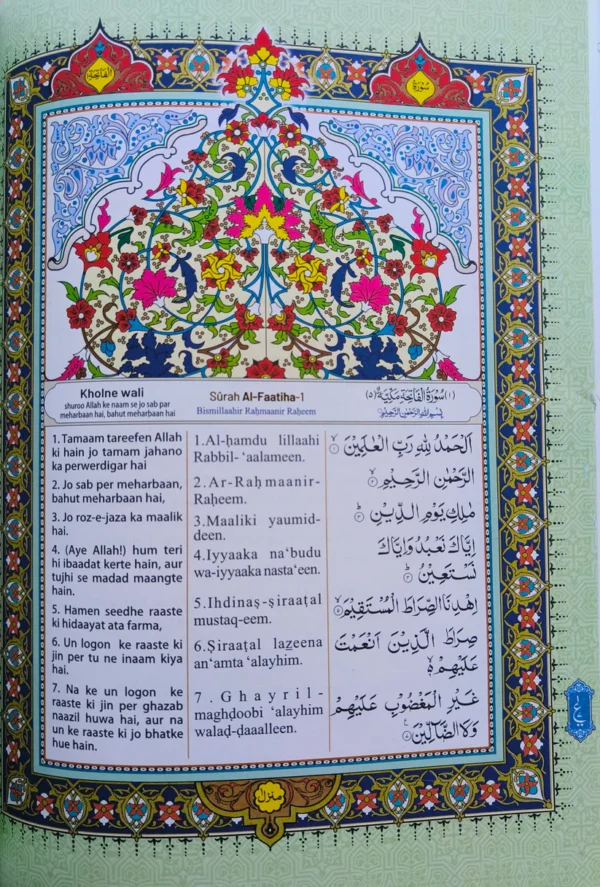 الفاتحة
سورة
Kholne wali
shuroo Allah ke naam se jo sab par
meharbaan hai, bahut meharbaan hai
Sūrah Al-Faatiha-1
Bismillaahir Raḥmaanir Raḥeem
(١) سُوْرَةُ الْفَاتِحَةِ مَكِّيَّةٌ (٥)
بِسْمِ اللّٰهِ الرَّحْمٰنِ الرَّحِيْمِ
1. Tamaam tareefen Allah
ki hain jo tamam jahano
ka perwerdigar hai
2. Jo sab per meharbaan,
bahut meharbaan hai,
3. Jo roz-e-jaza ka maalik
hai.
4. (Aye Allah!) hum teri
hi ibaadat kerte hain, aur
tujhi se madad maangte
hain.
5. Hamen seedhe raaste
ki hidaayat ata farma,
6. Un logon ke raaste ki
jin per tu ne inaam kiya
hai.
7. Na ke un logon ke
raaste ki jin per ghazab
naazil huwa hai, aur na
un ke raaste ki jo bhatke
hue hain.
1.Al-ḥamdu lillaahi
Rabbil- ‘aalameen.
2.Ar-Raḥmaanir-
Raḥeem.
3.Maaliki yaumid-
deen.
4.Iyyaaka na‘budu
wa-iyyaaka nasta‘een.
5.Ihdinaṣ-ṣiraaṭal
mustaq-eem.
6.Ṣiraaṭal lazeena
an‘amta ‘alayhim.
7.Ghayril-
maghḍoobi ‘alayhim
walaḍ-ḍaaalleen.
اَلْحَمْدُ لِلّٰهِ رَبِّ الْعٰلَمِيْنَ ۙ‏١
الرَّحْمٰنِ الرَّحِيْمِ ۙ‏٢
مٰلِكِ يَوْمِ الدِّيْنِ ؕ‏٣
اِيَّاكَ نَعْبُدُ وَاِيَّاكَ
نَسْتَعِيْنُ ؕ‏٤
اِهْدِنَا الصِّرَاطَ الْمُسْتَقِيْمَ ۙ‏٥
صِرَاطَ الَّذِيْنَ اَنْعَمْتَ
عَلَيْهِمْ ۙ‏٦
غَيْرِ الْمَغْضُوْبِ عَلَيْهِمْ
وَلَا الضَّآلِّيْنَ ‏٧
منزل